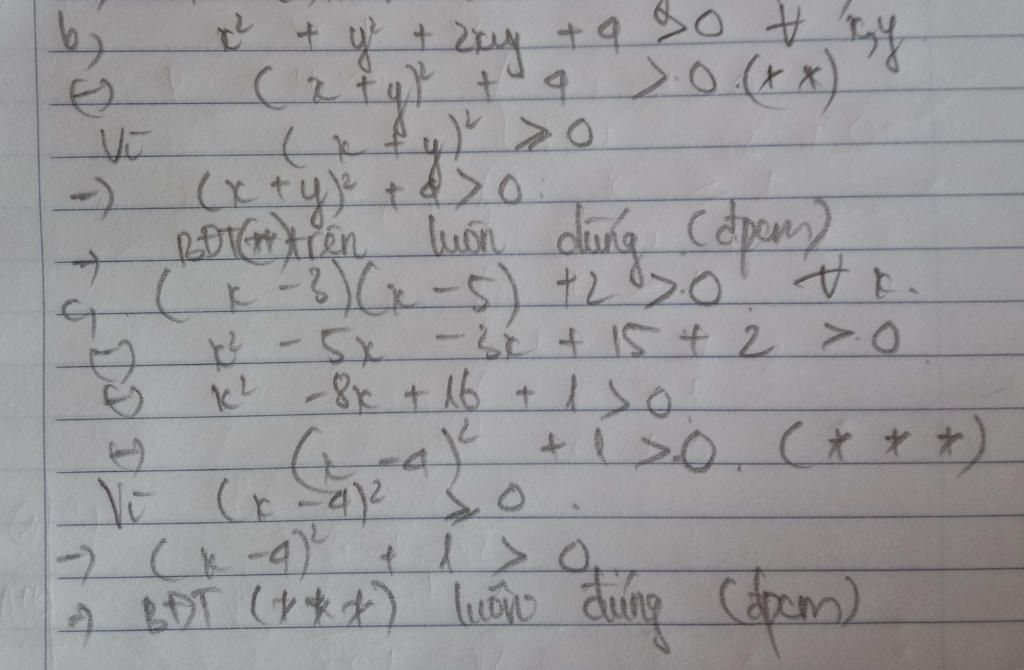 b, x² + y² + 2xy + 4 > 0 ∀ x,y
⇔ (x + y)² + 4 > 0 (**)
Vì (x + y)² ≥ 0
→ (x + y)² + 4 > 0
→ BĐT(**) trên luôn đúng (đpcm)
c, (x - 3)(x - 5) + 2 > 0 ∀ x.
⇔ x² - 5x - 3x + 15 + 2 > 0
⇔ x² - 8x + 16 + 1 > 0
⇔ (x - 4)² + 1 > 0. (***)
Vì (x - 4)² ≥ 0.
→ (x - 4)² + 1 > 0
→ BĐT (***) luôn đúng (đpcm)